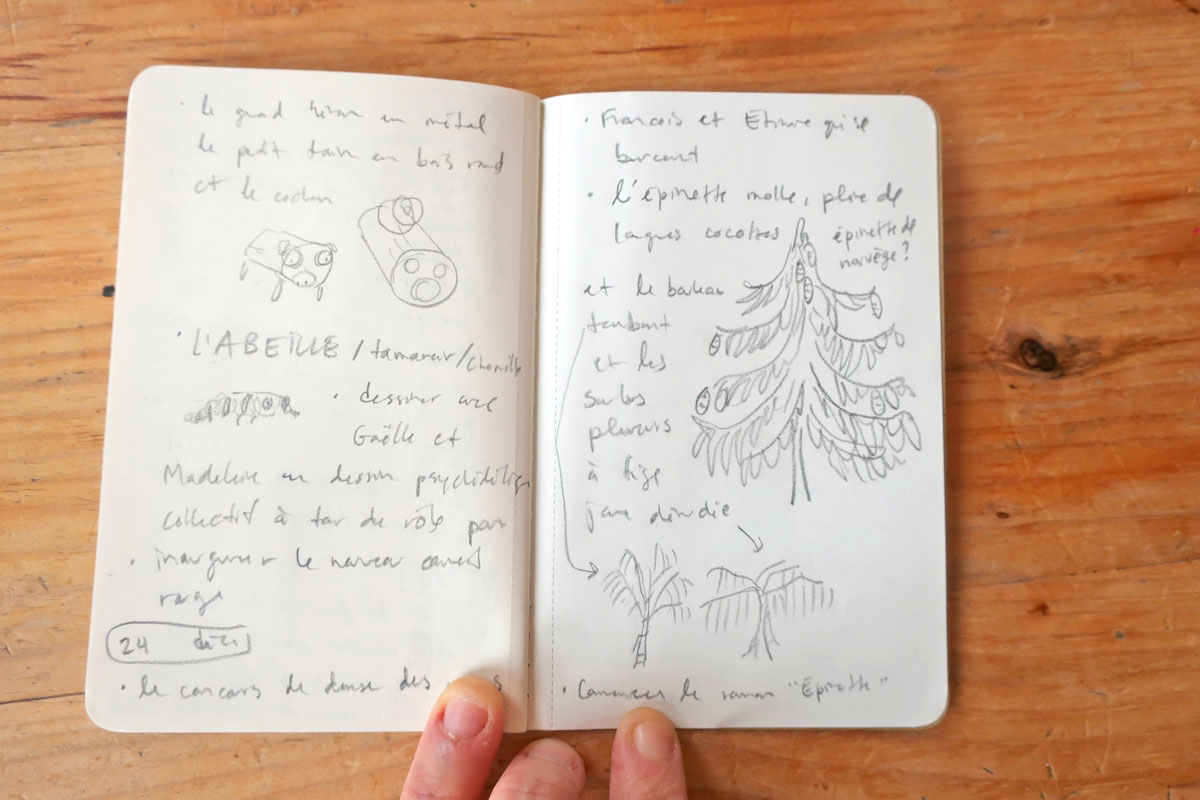 · le grand héron en métal
le petit train en bois rond
et le cochon
· L'ABEILLE / tamanoir / chenille
· dessiner avec
Gaëlle et
Madeleine un dessin psychédélique
collectif à tour de rôle pour
· inaugurer le nouveau carnet
rouge
24 déc
· le concours de danse des
· François et Étienne qui se
bercent
· l'épinette molle, pleine de
longues cocottes
épinette de
norvège?
et le bouleau
tombant
et les
saules
pleureurs
à tige
jaune dindie
· Commencer le roman "Épinette"